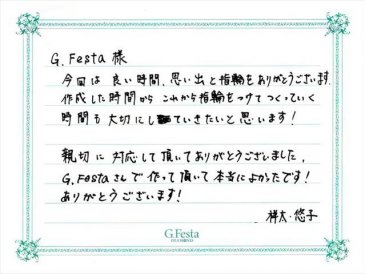 G.Festa 様
今回は 良い時間、思い出と指輪をありがとうございます。
作成した時間から これから指輪をつけてつくっていく
時間も 大切にしていきたいと思います！
親切に 対応して頂いてありがとうございました。
G.Festaさんで作って頂いて本当によかったです！
ありがとうございます！
祥太・悠子
G.Festa
DIAMOND